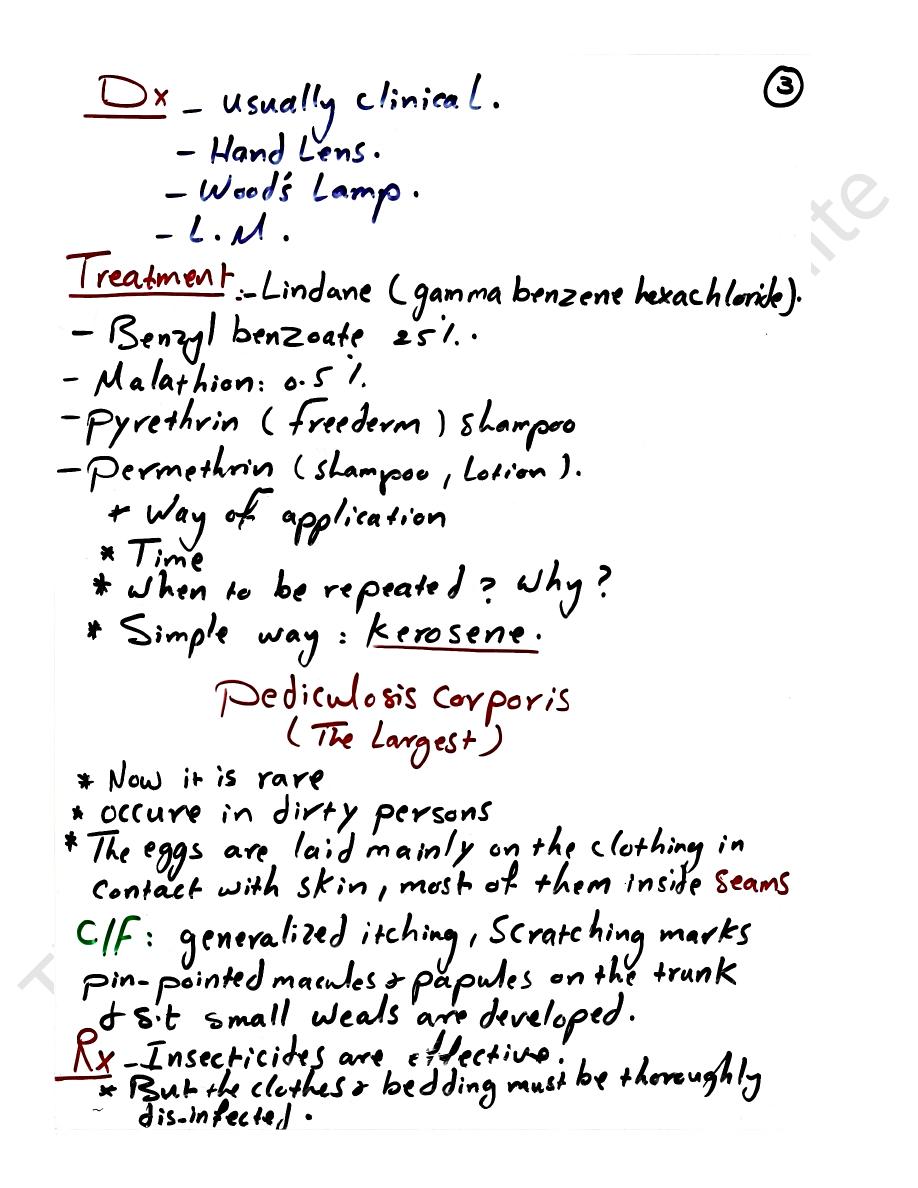 3
Dx - usually clinical.
- Hand Lens.
- Wood's Lamp.
- L.M.
Treatment:- Lindane (gamma benzene hexachloride).
- Benzyl benzoate 25%.
- Malathion: 0.5%.
- Pyrethrin (freederm) shampoo
- Permethrin (shampoo, Lotion).
* Way of application
* Time
* When to be repeated? Why?
* Simple way: Kerosene.
Pediculosis Corporis
(The Largest)
* Now it is rare
* occure in dirty persons
* The eggs are laid mainly on the clothing in
contact with skin, most of them inside seams
C/F: generalized itching, Scratching marks
pin-pointed macules & papules on the trunk
& s.t small weals are developed.
Rx - Insecticides are effective.
* But the clothes & bedding must be thoroughly
dis-infected.